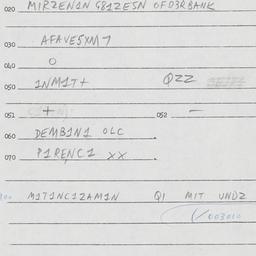 020 MIRZEN1N G81ZESN OFD3RBANK
030 AFAVE5XM7
040 O
050 1NM1T+ QZZ
051 + 052 –
060 DEMBIN1 OLC .
070 P1RENC1 XX .
M1T1NC1ZAM1N QI MIT UNDZ
003010